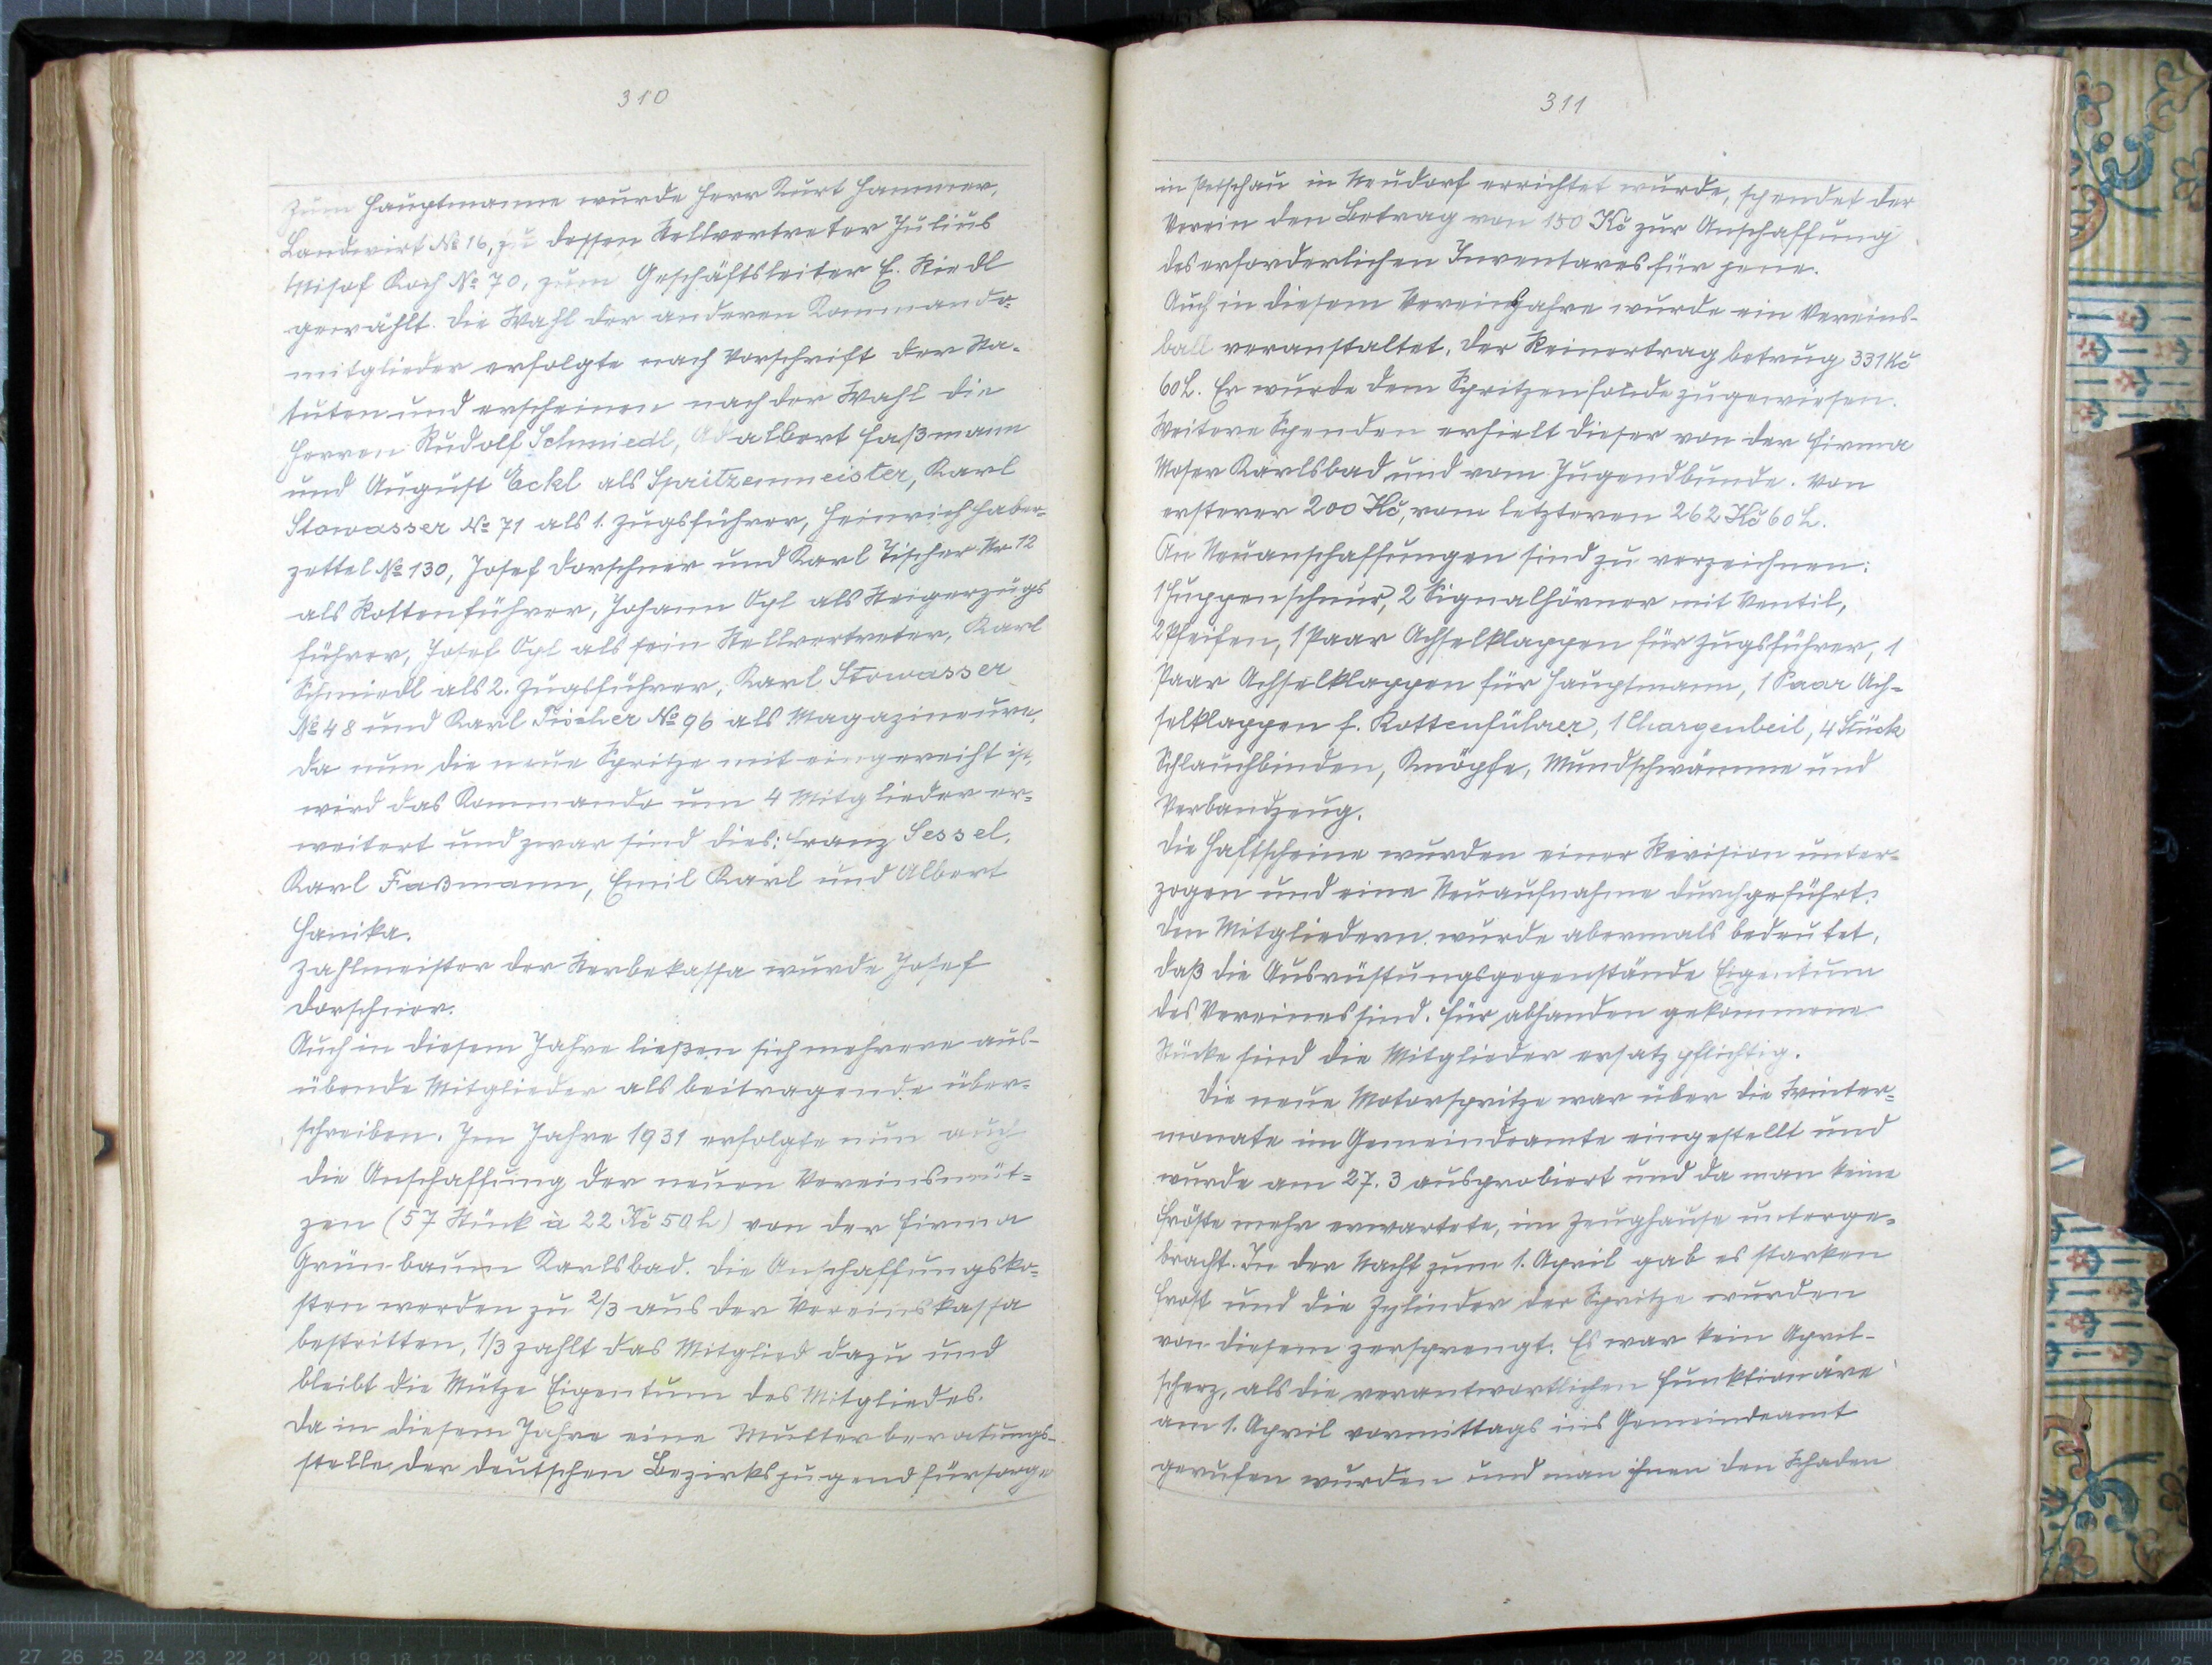 310
Zum Hauptmanne wurde Herr Kurt Hammer,
Landwirt № 16, zu dessen Stellvertreter Julius
Koch № 70, zum Geschäftsleiter E. Riedl
gewählt. Die Wahl der anderen Kommando-
mitglieder erfolgte nach Vorschrift der Sta-
tuten und erscheinen nach der Wahl die
Herren Rudolf Schmiedl, Adalbert Faßmann
und August Eckl als Spritzenmeister, Karl
Stowasser № 71 als 1. Zugsführer, Heinrich Haber-
zettel № 130, Josef Dorschner und Karl Tischer Nr. 12
als Rottenführer, Johann Opl als Steigerzugs
führer, Josef Opl als sein Stellvertreter, Karl
Schmiedl als 2. Zugsführer, Karl Stowasser
№ 48 und Karl Tischer № 96 als Magazineure.
Da nun die neue Spritze mit eingereiht ist,
wird das Kommando um 4 Mitglieder er-
weitert und zwar sind dies: Franz Sessel,
Karl Faßmann, Emil Karl und Albert
Hanika.
Zahlmeister der Sterbekassa wurde Josef
Dorschner.
Auch in diesem Jahre ließen sich mehrere aus-
übende Mitglieder als beitragende über-
schreiben. Im Jahre 1931 erfolgte nun auch
die Anschaffung der neuen Vereinsmüt-
zen (57 Stück à 22 Kč 50 h) von der Firma
Grünbaum Karlsbad. Die Anschaffungsko-
sten werden zu 2/3 aus der Vereinskassa
bestritten, 1/3 zahlt das Mitglied dazu und
bleibt die Mütze Eigentum des Mitgliedes.
Da in diesem Jahre eine Mutterberatungs-
stelle der deutschen Bezirksjugendfürsorge
311
in Petschau in Neudorf errichtet wurde, spendet der
Verein den Betrag von 150 Kč zur Anschaffung
des erforderlichen Inventares für jene.
Auch in diesem Vereinsjahre wurde ein Vereins-
ball veranstaltet. Der Reinertrag betrug 331 Kč
60 h. Er wurde dem Spritzenfonde zugewiesen.
Weitere Spenden erhielt dieser von der Firma
Moser Karlsbad und vom Jugendbunde. Von
ersterer 200 Kč, vom letzteren 262 Kč 60 h.
An Neuanschaffungen sind zu verzeichnen:
1 Huppenschnur, 2 Signalhörner mit Ventil,
2 Pfeifen, 1 Paar Achselklappen für Zugsführer, 1
Paar Achselklappen für Hauptmann, 1 Paar Ach-
selklappen f. Rottenführer, 1 Chargenbeil, 4 Stück
Schlauchbinden, Knöpfe, Mundschwämme und
Verbandzeug.
Die Haftscheine wurden einer Revision unter-
zogen und eine Neuaufnahme durchgeführt.
Den Mitgliedern wurde abermals bedeutet,
daß die Ausrüstungsgegenstände Eigentum
des Vereines sind. Für abhanden gekommene
Stücke sind die Mitglieder ersatzpflichtig.
Die neue Motorspritze war über die Winter-
monate im Gemeindeamte eingestellt und
wurde am 27. 3 ausprobiert und da man keine
Fröste mehr erwartete, im Zeughause unterge-
bracht. In der Nacht zum 1. April gab es starken
Frost und die Zylinder der Spritze wurden
von diesem zersprengt. Es war kein April-
scherz, als die verantwortlichen Funktionäre
am 1. April vormittags ins Gemeindeamt
gerufen wurden und man ihnen den Schaden